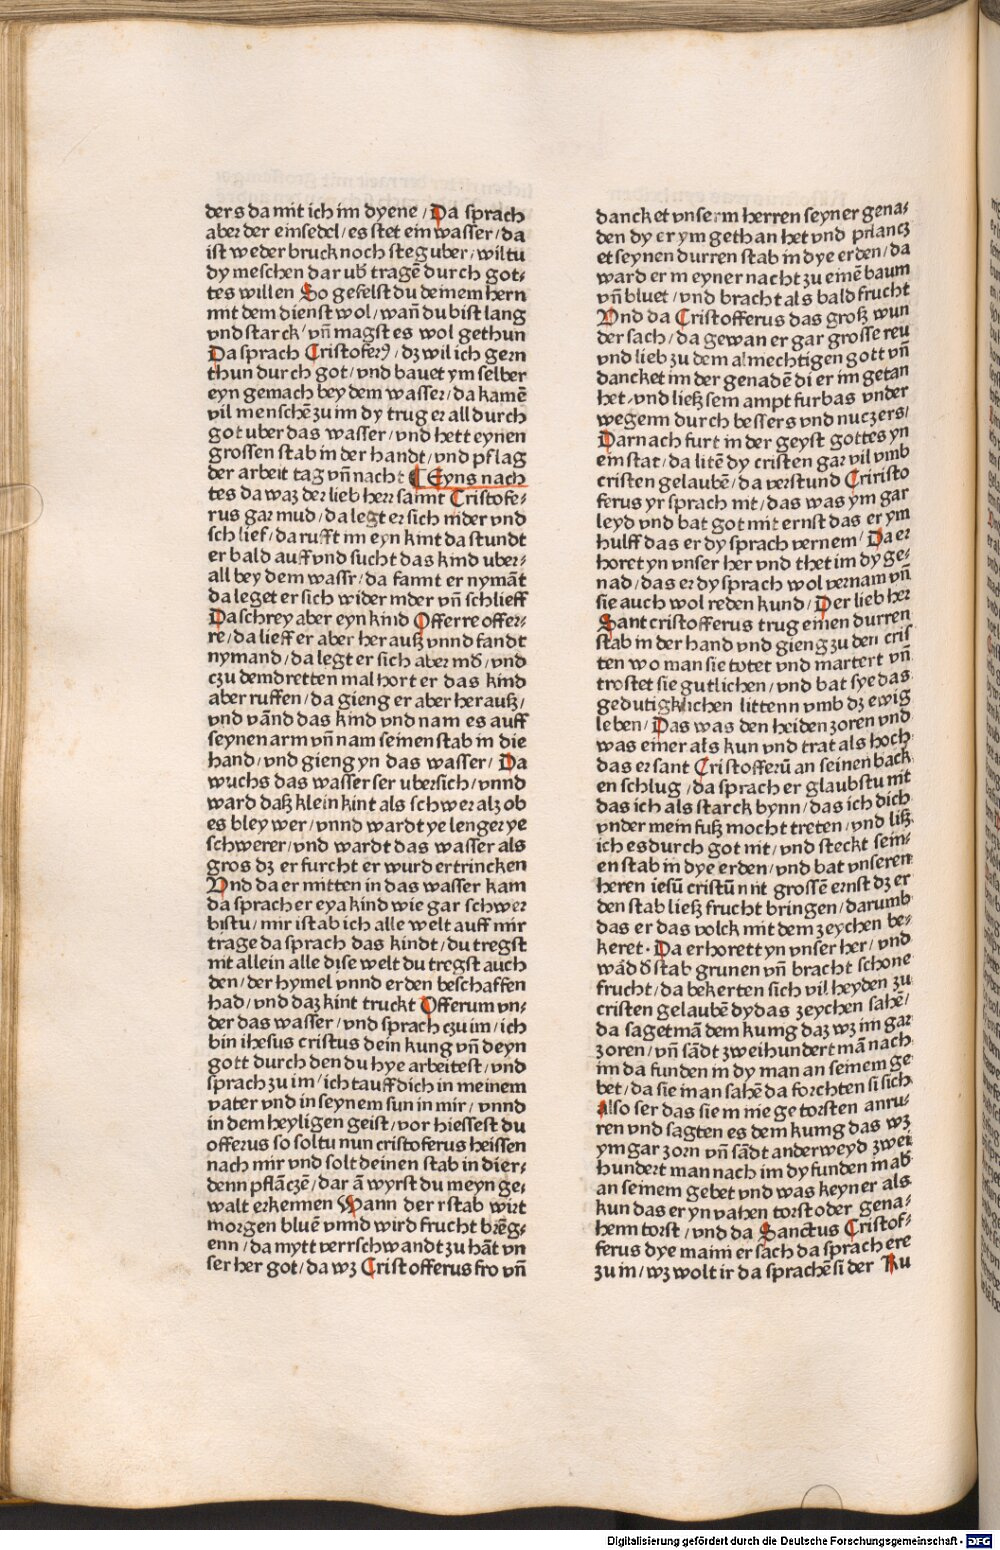 ders da mit ich im dyene / Da sprach
aber der einsedel / es stet ein wasser / da
ist weder bruck noch steg uber / wiltu
dy meschen dar ub̃ tragẽ durch got⸗
tes willen So gefelst du deinem hern
mit dem dienst wol / wañ du bist lang
vnd starck / vñ magst es wol gethun
Da sprach Cristoferꝰ / dz wil ich gern
thun durch got / vnd bauet ym selber
eyn gemach bey dem wasser / da kamẽ
vil menschẽ zu im dy trug er all durch
got uber das wasser / vnd hett eynen
grossen stab in der handt / vnd pflag
der arbeit tag vñ nacht ⸿ Eyns nach
tes da waz der lieb herr sannt Cristofe⸗
rus gar mud / da legt er sich nider vnd
schlief / da rufft im eyn kint da stundt
er bald auff vnd sucht das kind uber⸗
all bey dem wassr / da fannt er nymãt
da leget er sich wider nider vñ schlieff
Da schrey aber eyn kind Offerre offer⸗
re / da lieff er aber herauß vnnd fandt
nymand / da legt er sich aber nid̃ / vnd
czu dem dretten mal hort er das kind
aber ruffen / da gieng er aber herauß /
vnd vãnd das kind vnd nam es auff
seynen arm vñ nam seinen stab in die
hand / vnd gieng yn das wasser / Da
wuchs das wasser ser ubersich / vnnd
ward daß klein kint als schwer alz ob
es bley wer / vnnd wardt ye lenger ye
schwerer / vnd wardt das wasser als
gros dz er furcht er wurd ertrincken
Vnd da er mitten in das wasser kam
da sprach er eya kind wie gar schwer
bistu / mir ist ab ich alle welt auff mir
trage da sprach das kindt / du tregst
nit allein alle dise welt du tregst auch
den / der hymel vnnd erden beschaffen
had / vnd daz kint truckt Offerum vn⸗
der das wasser / vnd sprach czu im / ich
bin ihesus cristus dein kung vñ deyn
gott durch den du hye arbeitest / vnd
sprach zu im / ich tauff dich in meinem
vater vnd in seynem sun in mir / vnnd
in dem heyligen geist / vor hiessest du
offerus so soltu nun cristoferus heissen
nach mir vnd solt deinen stab in dier⸗
denn pflãczẽ / dar ã wyrst du meyn ge⸗
walt erkennen Wann der rstab wirt
morgen bluẽ vnnd wird frucht brẽg⸗
enn / da mytt verrschwandt zu hãt vn
ser her got / da wz Cristofferus fro vñ
dancket vnserm herren seyner gena⸗
den dy er ym gethan het vnd prlancz
et seynen durren stab in dye erden / da
ward er in eyner nacht zu einẽ baum
vñ bluet / vnd bracht als bald frucht
Vnd da Cristofferus das groß wun
der sach / da gewan er gar grosse reu
vnd lieb zu dem almechtigen gott vñ
dancket im der genadẽ di er im getan
het / vnd ließ sein ampt furbas vnder
wegenn durch bessers vnd nuczers /
Darnach furt in der geyst gottes yn
ein stat / da litẽ dy cristen gar vil vmb
cristen gelaubẽ / da verstund Criristo
ferus yr sprach nit / das was ym gar
leyd vnd bat got mit ernst das er ym
hulff das er dy sprach vernem / Da er
horet yn vnser her vnd thet im dy ge⸗
nad / das er dy sprach wol vernam vñ
sie auch wol reden kund / Der lieb her
Sant cristofferus trug einen durren
stab in der hand vnd gieng zu den cris
ten wo man sie totet vnd martert vñ
trostet sie gutlichen / vnd bat sye das
gedutigklichen littenn vmb dz ewig
leben / Das was den heiden zoren vnd
was einer als kun vnd trat als hoch
das er sant Cristofferũ an seinen back
en schlug / da sprach er glaubstu nit
das ich als starck bynn / das ich dich
vnder mein fuß mocht treten / vnd liß
ich es durch got nit / vnd steckt sein⸗
en stab in dye erden / vnd bat vnseren
heren iesũ cristũ mit grossẽ ernst dz er
den stab ließ frucht bringen / darumb
das er das volck mit dem zeychen be⸗
keret · Da erhorett yn vnser her / vnd
wãd d̃ stab grunen vñ bracht schone
frucht / da bekerten sich vil heyden zu
cristen gelaubẽ dy das zeychen sahẽ /
da saget mã dem kunig daz wz im gar
zoren / vñ sãdt zweihundert mã nach
im da funden in dy man an seinem ge
bet / da sie in an sahẽ da forchten si sich
also ser das sie in nie getorsten anru⸗
ren vnd sagten es dem kunig das wz
ym gar zorn vñ sãdt anderweyd zwei
hundert man nach im dy funden in ab̃
an seinem gebet vnd was keyner als
kun das er yn vahen torst oder gena⸗
henn torst / vnd da Sanctus Cristof⸗
ferus dye mann ersach da sprach ere
zu in / wz wolt ir da sprachẽ si der Ku
Digitalisierung gefördert durch die Deutsche Forschungsgemeinschaft - DFG